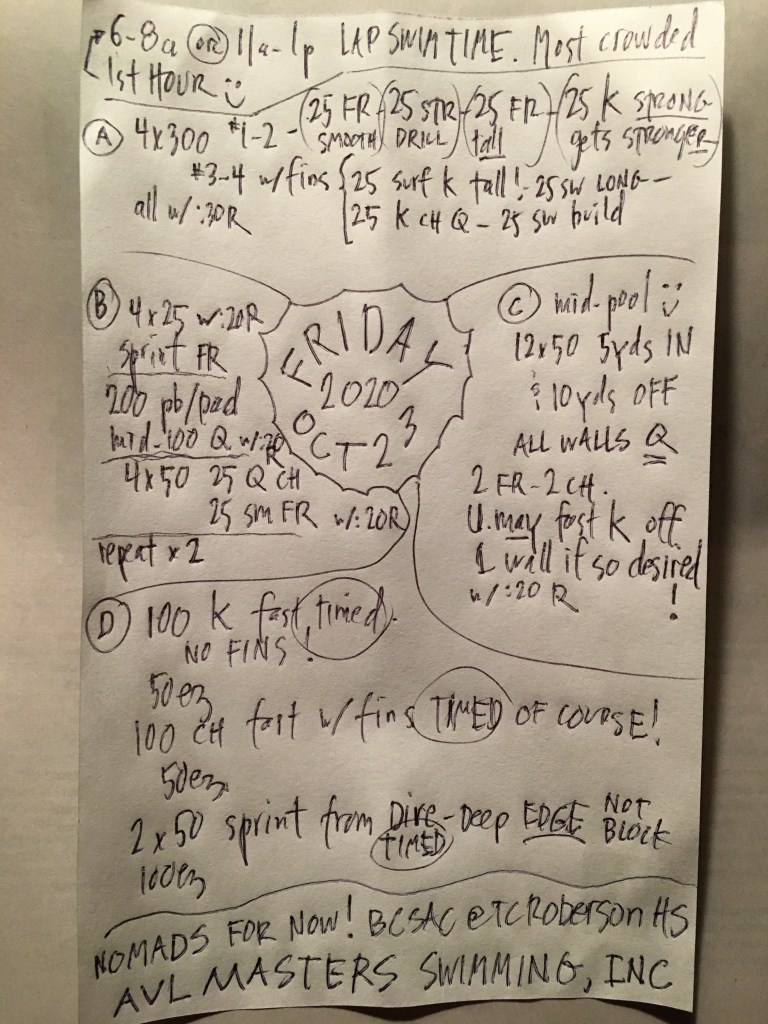 *6-8a or 11a-1p LAP SWIM TIME. Most crowded
1st HOUR
A 4x300 #1-2 - (25 FR SMOOTH)-(25 STR DRILL)-(25 FR tall)-(25 K STRONG gets STRONGER)
#3-4 w/fins 25 surf k tall! - 25 sw LONG -
all w/:30R 25 K CH Q - 25 sw build
B 4x25 w:20R
sprint FR
200 pb/pad
mid-100 Q w/:20R
4x50 25 Q CH
25 sm FR w/:20R
repeat x2
FRIDAY
2020
OCT 23
C mid-pool
12x50 5yds IN
& 10yds OFF
ALL WALLS Q
2 FR-2 CH.
U.may fast K off
1 wall if so desired!
w/:20 R
D 100 K fast, timed.
NO FINS!
50ez
100 CH fast w/fins TIMED OF COURSE!
50ez
2x50 sprint from Dive-Deep EDGE NOT BLOCK
TIMED
100ez
NOMADS FOR NOW! BCSAC @TCRoberson HS
AVL MASTERS SWIMMING, INC